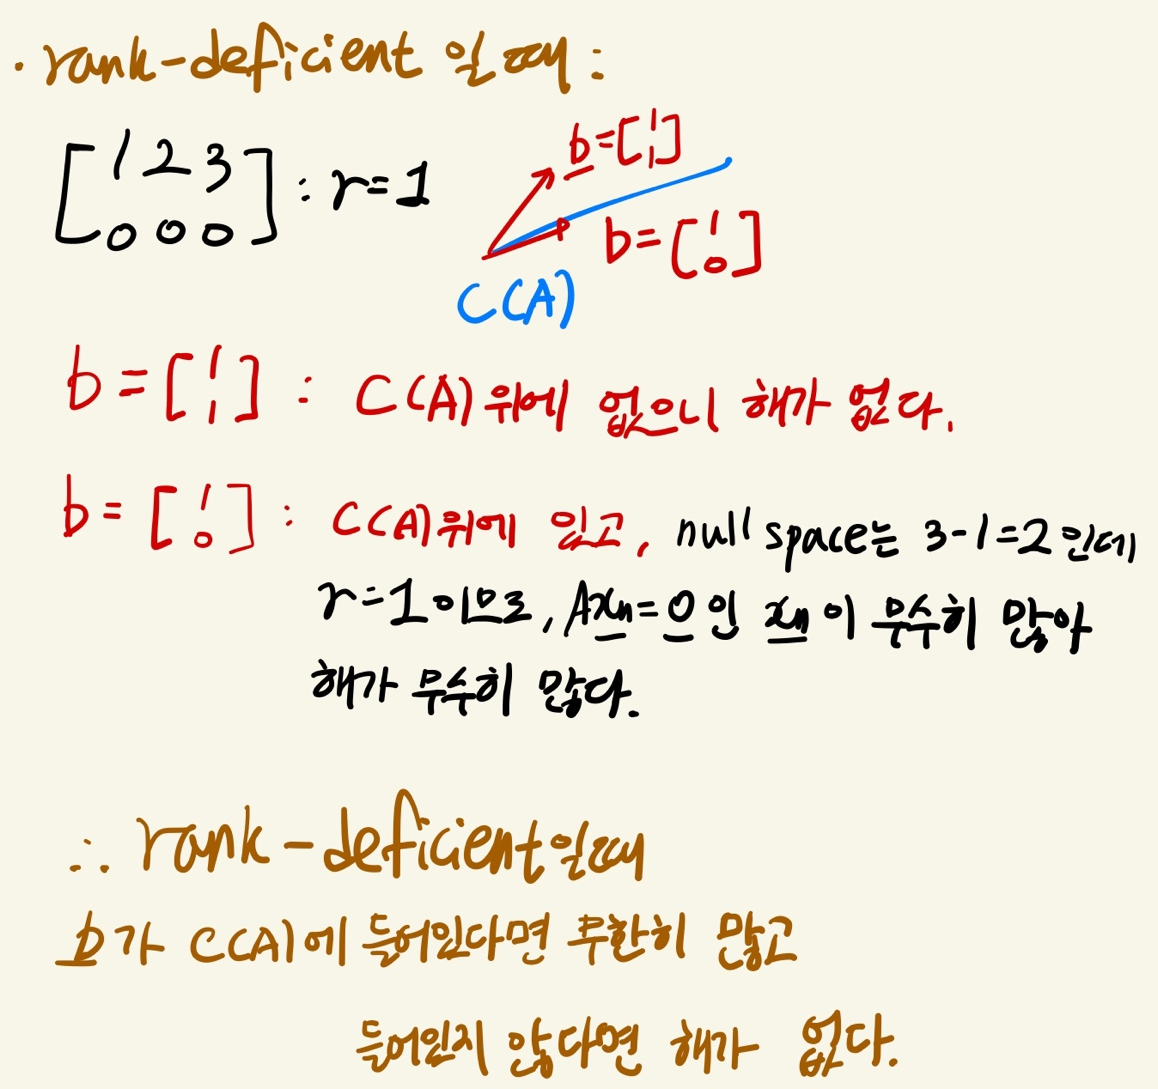 · rank-deficient 일때 :
[1 2 3
0 0 0] : r=1
b=[1
1]
b=[1
0]
C(A)
b=[1
1] : C(A) 위에 없으니 해가 없다.
b=[1
0] : C(A) 위에 있고, null space는 3-1=2 인데
r=1 이므로, Axn=0 인 xn 이 무수히 많아
해가 무수히 많다.
∴ rank-deficient일때
b가 C(A)에 들어있다면 무한히 많고
들어있지 않다면 해가 없다.